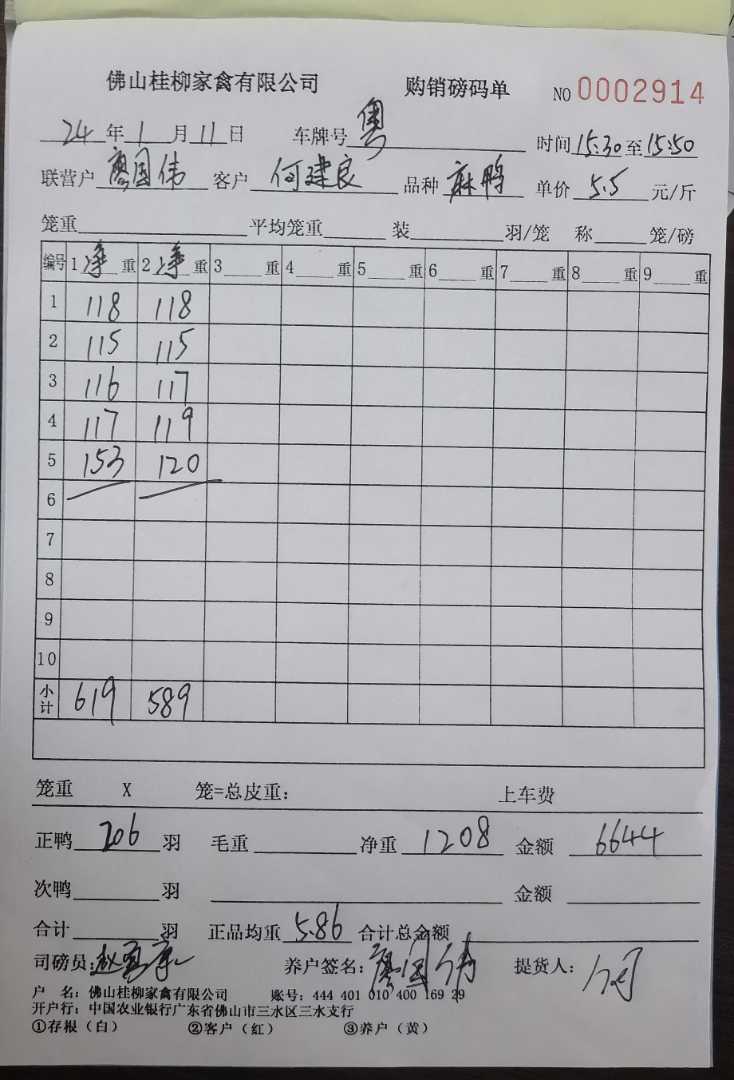 佛山桂柳家禽有限公司 购销磅码单 NO 0002914
24 年 1 月 11 日 车牌号 粤 时间 15:30 至 15:50
联营户 廖国伟 客户 何建良 品种 麻鸭 单价 5.5 元/斤
笼重 平均笼重 装 羽/笼 称 笼/磅
编号 1 净 重 2 净 重 3 重 4 重 5 重 6 重 7 重 8 重 9 重
1 118 118
2 115 115
3 116 117
4 117 119
5 153 120
6
7
8
9
10
小计 619 589
笼重 X 笼=总皮重: 上车费
正鸭 206 羽 毛重 净重 1208 金额 6644
次鸭 羽 金额
合计 羽 正品均重 5.86 合计总金额
司磅员: 养户签名: 廖国伟 提货人:
户 名: 佛山桂柳家禽有限公司 账号: 444 401 010 400 169 29
开户行: 中国农业银行广东省佛山市三水区三水支行
①存根(白) ②客户(红) ③养户(黄)